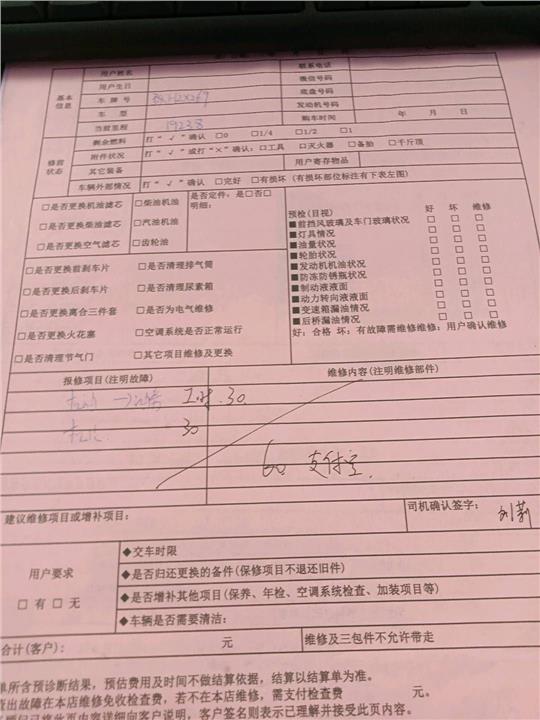 用户姓名 联系电话
基本信息
用户生日 微信号码
车牌号 底盘号码
车型 发动机号码
当前里程 19238 购车时间 年 月 日
修前状态
剩余燃料 打“√”确认 □0 □1/4 □1/2 □1
附件状况 打“√”或打“×”确认：□工具 □灭火器 □备胎 □千斤顶
其它装备 用户寄存物品
车辆外部情况 打“√”确认 □完好 □有损坏（有损坏部位标注有下表左图）
□是否更换机油滤芯 □柴油机油 是否定件：是□否□
明细：
□是否更换柴油滤芯 □汽油机油
□是否更换空气滤芯 □齿轮油
预检（目视） 好 坏 维修
■前挡风玻璃及车门玻璃状况 □ □ □
■灯具情况 □ □ □
■油量状况 □ □ □
■轮胎状况 □ □ □
■发动机机油状况 □ □ □
■防冻防锈瓶状况 □ □ □
■制动液液面 □ □ □
■动力转向液液面 □ □ □
■变速箱漏油情况 □ □ □
■后桥漏油情况 □ □ □
好：合格 坏：有故障需维修维修：用户确认维修
□是否更换前刹车片 □是否清理排气筒
□是否更换后刹车片 □是否清理尿素箱
□是否更换离合三件套 □是否为电气维修
□是否更换火花塞 □空调系统是否正常运行
□是否清理节气门 □其它项目维修及更换
报修项目（注明故障） 维修内容（注明维修部件）
工时 30
30
60 支付宝
建议维修项目或增补项目： 司机确认签字： 刘莉
用户要求
□有 □无
◆交车时限
◆是否归还更换的备件（保修项目不退还旧件）
◆是否增补其他项目（保养、年检、空调系统检查、加装项目等）
◆车辆是否需要清洁：
合计（客户）： 元 维修及三包件不允许带走
单所含预诊断结果，预估费用及时间不做结算依据，结算以结算单为准。
查出故障在本店维修免收检查费，若不在本店维修，需支付检查费 元。
已将此页内容详细向客户说明，客户签名则表示已理解并接受此页内容。